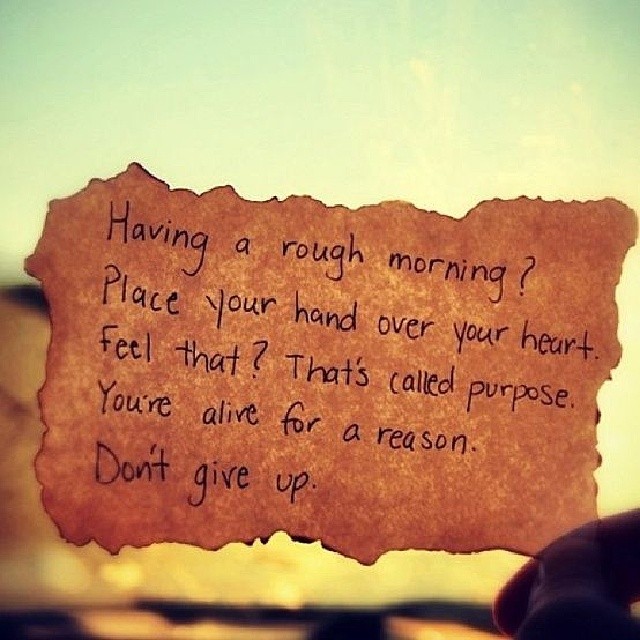 Having a rough morning?
Place your hand over your heart.
Feel that? That's called purpose.
You're alive for a reason.
Don't give up.